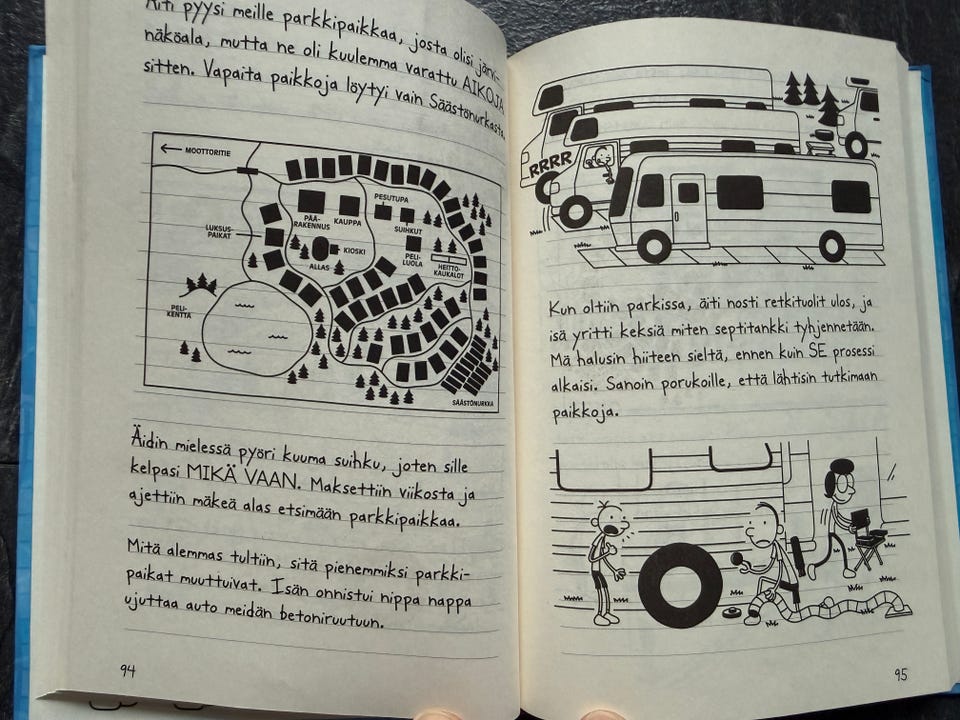 Äiti pyysi meille parkkipaikkaa, josta olisi järvi-
näköala, mutta ne oli kuulemma varattu AIKOJA
sitten. Vapaita paikkoja löytyi vain Säästönurkasta.
MOOTTORITIE
PESUTUPA
PÄÄ-
RAKENNUS
KAUPPA
SUIHKUT
LUKSUS-
PAIKAT
KIOSKI
PELI-
LUOLA
ALLAS
HEITTO-
KAUKALOT
PELI-
KENTTÄ
SÄÄSTÖNURKKA
Äidin mielessä pyöri kuuma suihku, joten sille
kelpasi MIKÄ VAAN. Maksettiin viikosta ja
ajettiin mäkeä alas etsimään parkkipaikkaa.
Mitä alemmas tultiin, sitä pienemmiksi parkki-
paikat muuttuivat. Isän onnistui nippa nappa
ujuttaa auto meidän betoniruutuun.
94
RRRR
Kun oltiin parkissa, äiti nosti retkituolit ulos, ja
isä yritti keksiä miten septitankki tyhjennetään.
Mä halusin hiiteen sieltä, ennen kuin SE prosessi
alkaisi. Sanoin porukoille, että lähtisin tutkimaan
paikkoja.
95